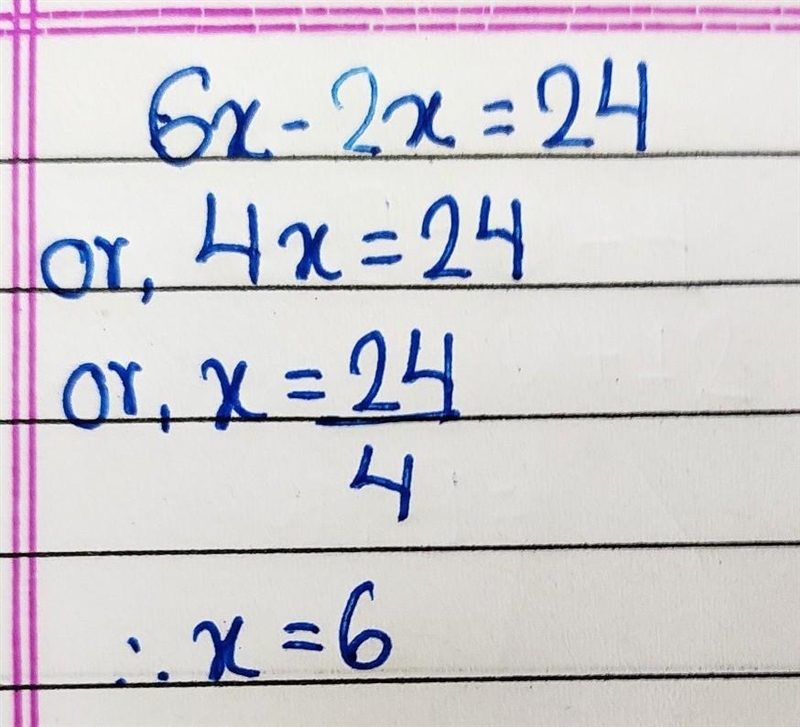 6x - 2x = 24
or, 4x = 24
or, x = 24/4
∴ x = 6